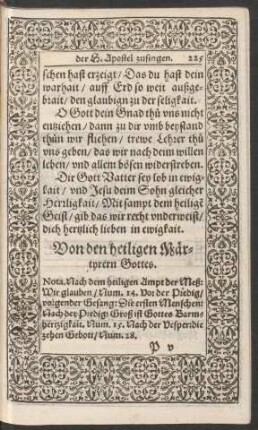 der H. Apostel zusingen. 225
schen hast erzeigt / Das du hast dein
warhait / auff Erd so weit außge-
brait / den glaubign zu der seligkait.
O Gott dein Gnad thů vns nicht
entziehen / dann zu dir vmb beystand
thůn wir fliehen / trewe Lehrer thů
vns geben / das wir nach deim willen
leben / vnd allem bösen widerstreben.
Dir Gott Vatter sey lob in ewig-
kait / vnd Jesu deim Sohn gleicher
Herrligkait / Mit sampt dem heiligē
Geist / gib das wir recht vnderweist /
dich hertzlich lieben in ewigkait.
Von den heiligen Mär-
tyrern Gottes.
Nota. Nach dem heiligen Ampt der Meß:
Wir glauben / Num. 14. Vor der Predig /
volgender Gesang: Die ersten Menschen:
Nach der Predig: Groß ist Gottes Barm-
hertzigkait. Num. 15. Nach der Vesper: die
zehen Gebott / Num. 28.
P v